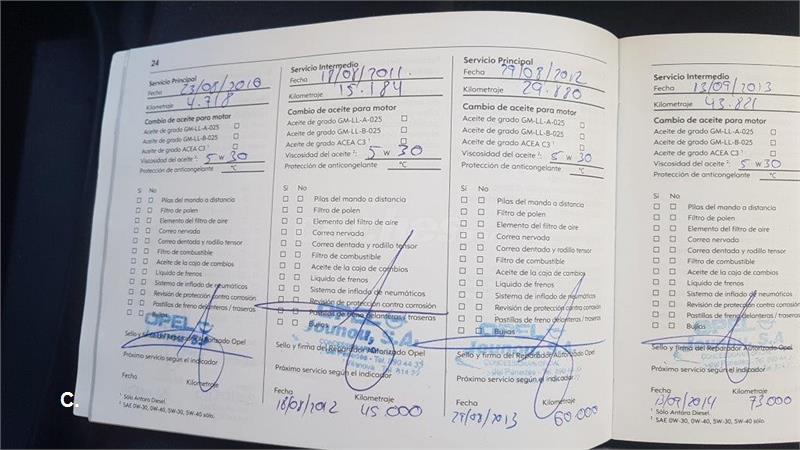 24
Servicio Principal
Fecha 23/08/2010
Kilometraje 4.718
Cambio de aceite para motor
Aceite de grado GM-LL-A-025
Aceite de grado GM-LL-B-025
Aceite de grado ACEA C3 ¹
Viscosidad del aceite ²: 5 w 30
Protección de anticongelante °C
Sí No
Pilas del mando a distancia
Filtro de polen
Elemento del filtro de aire
Correa nervada
Correa dentada y rodillo tensor
Filtro de combustible
Aceite de la caja de cambios
Líquido de frenos
Sistema de inflado de neumáticos
Revisión de protección contra corrosión
Pastillas de freno delanteras / traseras
Bujías
OPEL
Jounou, S.A.
Sello y firma del Reparador Autorizado Opel
Próximo servicio según el indicador
Fecha Kilometraje
¹ Sólo Antara Diesel.
² SAE 0W-30, 0W-40, 5W-30, 5W-40 sólo.
Servicio Intermedio
Fecha 18/08/2011.
Kilometraje 15.184
Cambio de aceite para motor
Aceite de grado GM-LL-A-025
Aceite de grado GM-LL-B-025
Aceite de grado ACEA C3 ¹
Viscosidad del aceite ²: 5 w 30
Protección de anticongelante °C
Sí No
Pilas del mando a distancia
Filtro de polen
Elemento del filtro de aire
Correa nervada
Correa dentada y rodillo tensor
Filtro de combustible
Aceite de la caja de cambios
Líquido de frenos
Sistema de inflado de neumáticos
Revisión de protección contra corrosión
Pastillas de freno delanteras / traseras
Bujías
OPEL
Jounou, S.A.
Sello y firma del Reparador Autorizado Opel
Próximo servicio según el indicador
Fecha Kilometraje
18/08/2012 45000
Servicio Principal
Fecha 29/08/2012
Kilometraje 29.880
Cambio de aceite para motor
Aceite de grado GM-LL-A-025
Aceite de grado GM-LL-B-025
Aceite de grado ACEA C3 ¹
Viscosidad del aceite ²: 5 w 30
Protección de anticongelante °C
Sí No
Pilas del mando a distancia
Filtro de polen
Elemento del filtro de aire
Correa nervada
Correa dentada y rodillo tensor
Filtro de combustible
Aceite de la caja de cambios
Líquido de frenos
Sistema de inflado de neumáticos
Revisión de protección contra corrosión
Pastillas de freno delanteras / traseras
Bujías
OPEL
Jounou, S.A.
Sello y firma del Reparador Autorizado Opel
Próximo servicio según el indicador
Fecha Kilometraje
29/08/2013 60.000
Servicio Intermedio
Fecha 13/09/2013
Kilometraje 43.821
Cambio de aceite para motor
Aceite de grado GM-LL-A-025
Aceite de grado GM-LL-B-025
Aceite de grado ACEA C3 ¹
Viscosidad del aceite ²: 5 w 30
Protección de anticongelante
Sí No
Pilas del mando a distancia
Filtro de polen
Elemento del filtro de aire
Correa nervada
Correa dentada y rodillo tensor
Filtro de combustible
Aceite de la caja de cambios
Líquido de frenos
Sistema de inflado de neumáticos
Revisión de protección contra corrosión
Pastillas de freno delanteras / traseras
Bujías
Sello y firma del Reparador Autorizado Opel
Próximo servicio según el indicador
Fecha Kilometraje
13/09/2014 73000
¹ Sólo Antara Diesel.
² SAE 0W-30, 0W-40, 5W-30, 5W-40 sólo.
C.